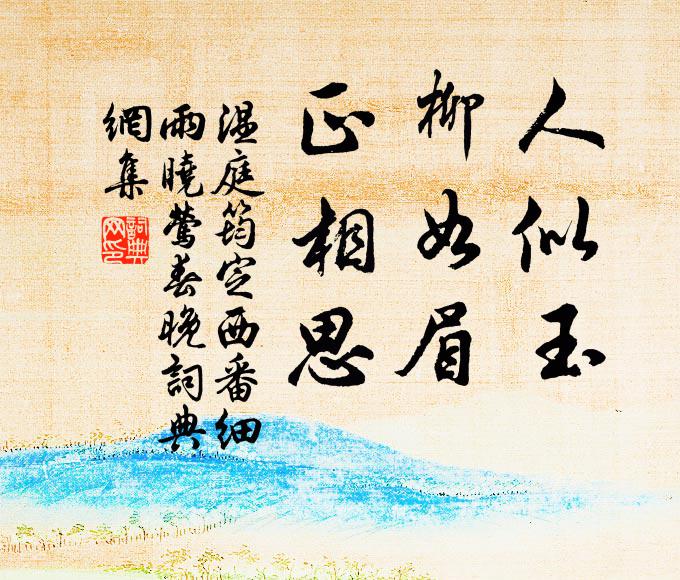 人似玉
柳如眉
正相思
温庭筠定西番细
雨曉鶯春晚詞典
網集
詞典
网印